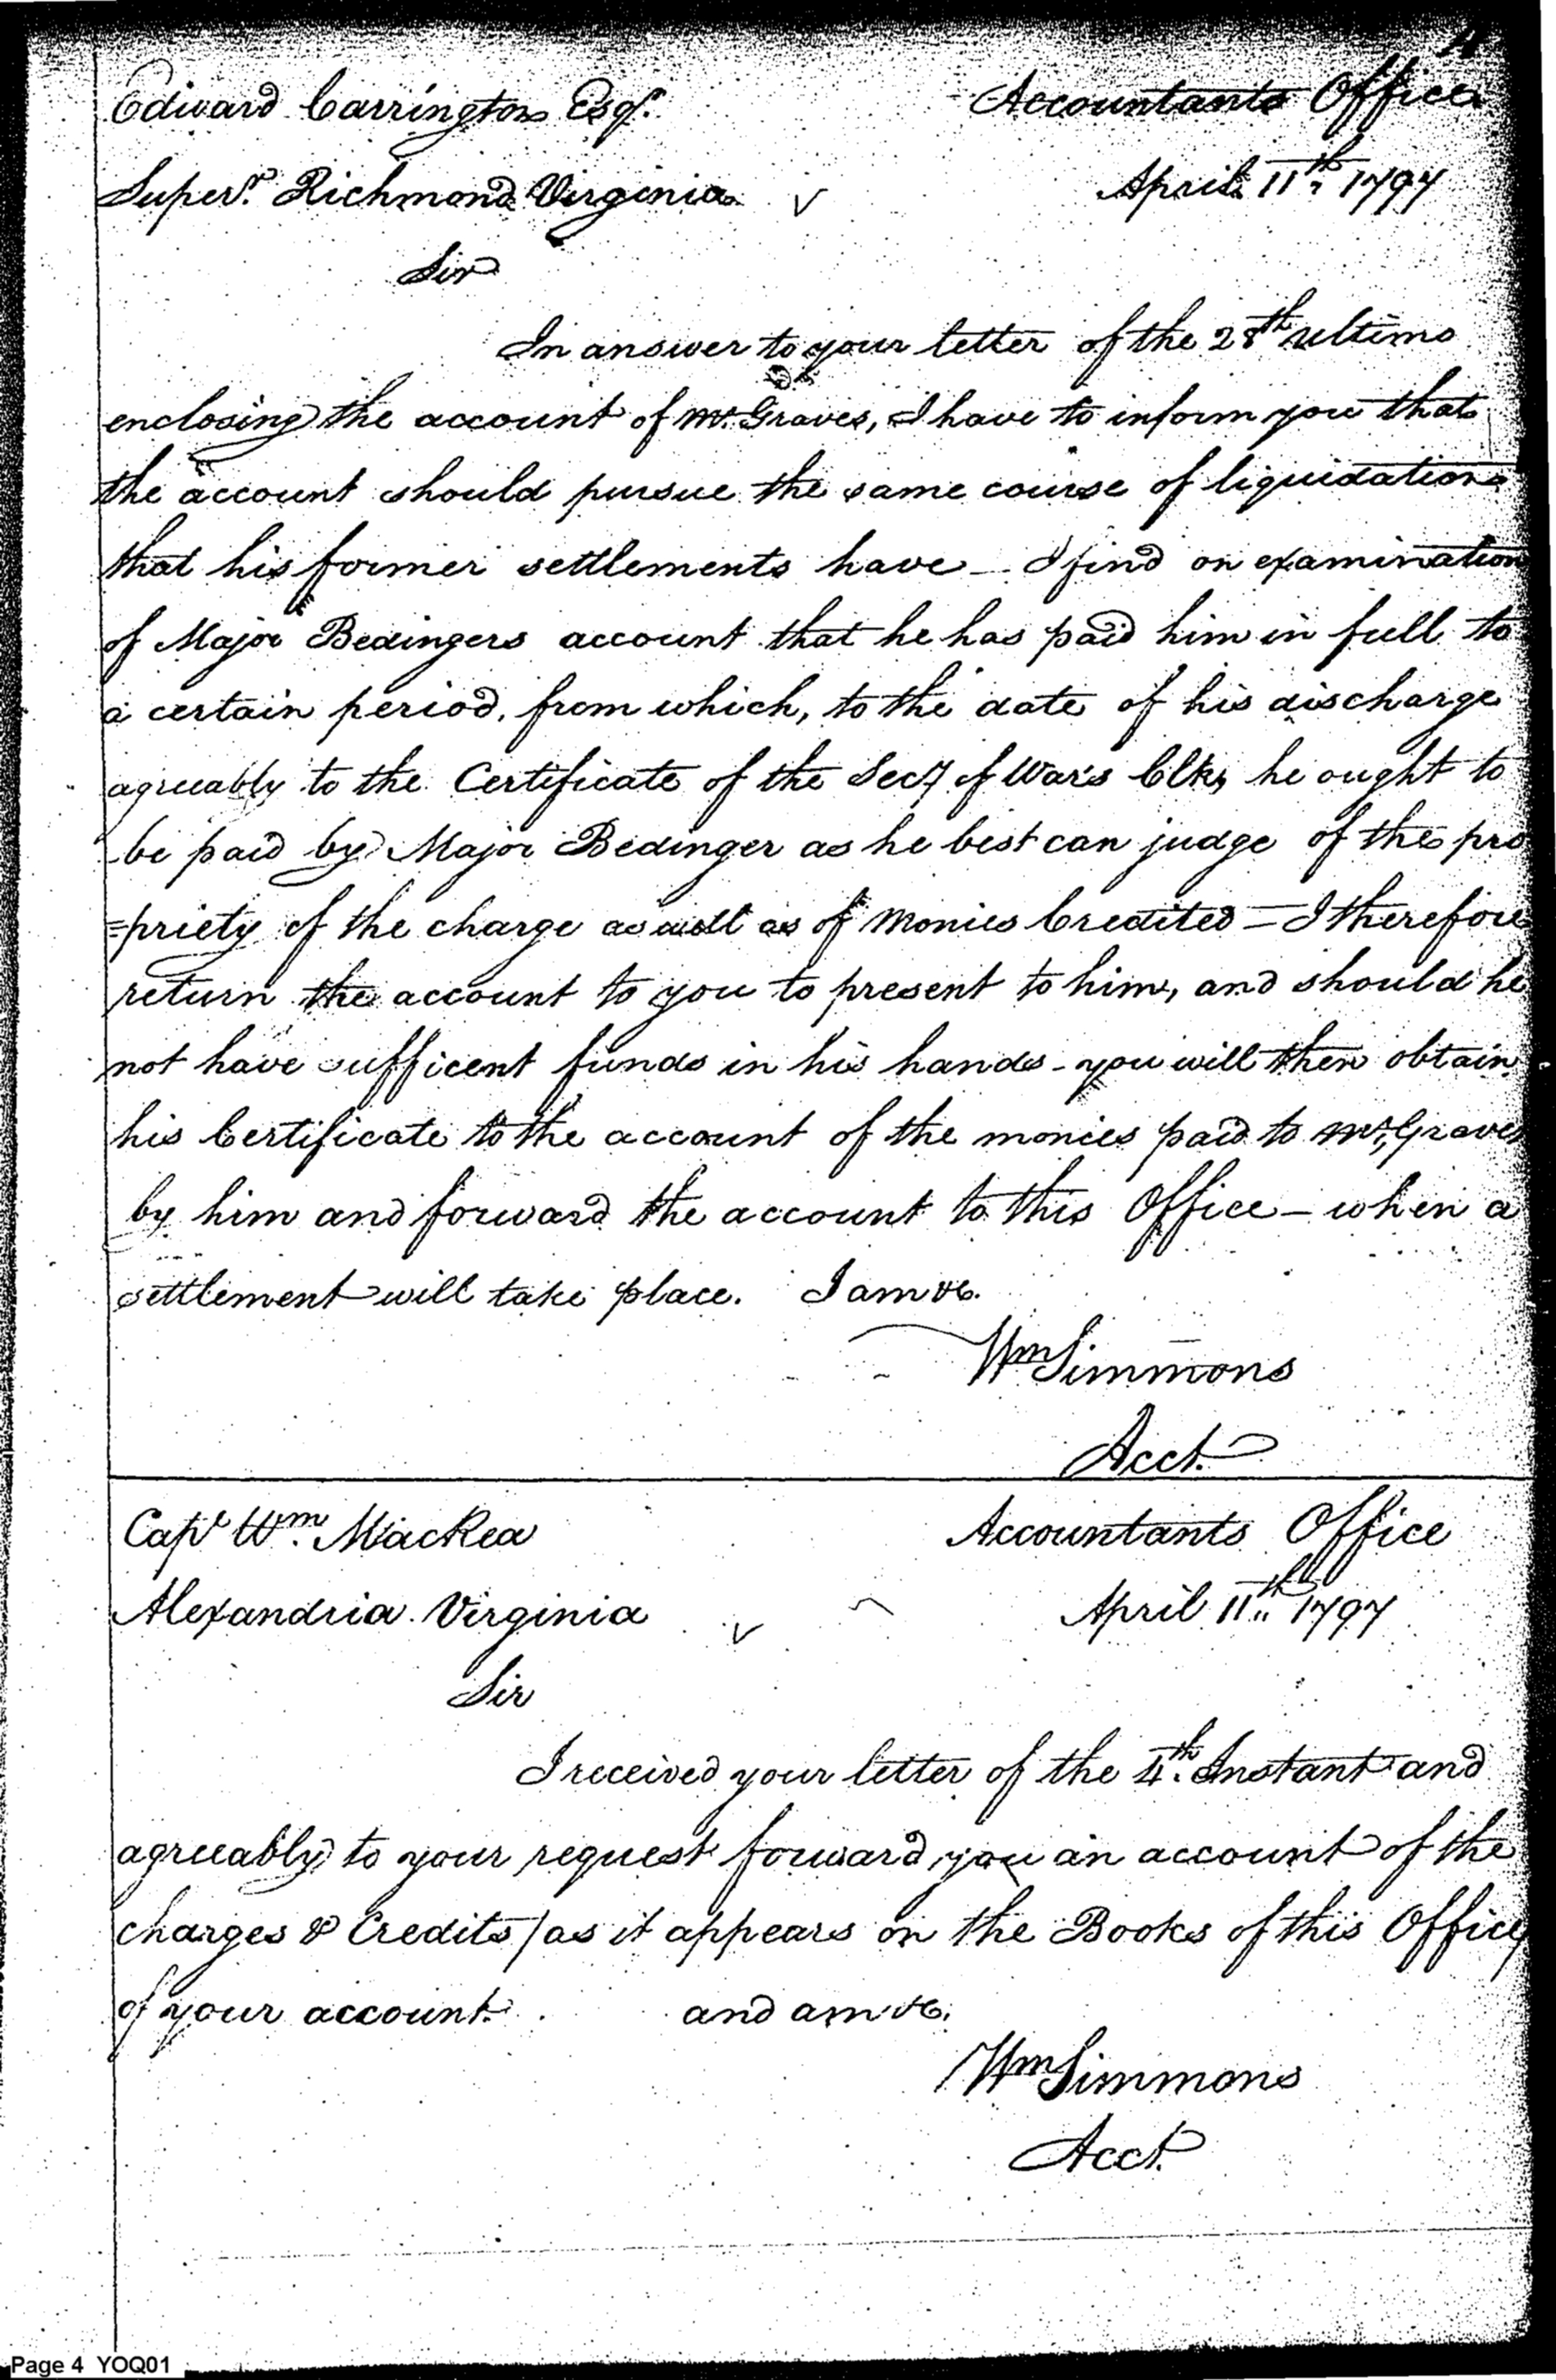 Edward Carrington Esqr. Accountants Office
Superr. Richmond Virginia April 11th 1797
Sir
In answer to your letter of the 28th ultimo
enclosing the account of Mr. Graves, I have to inform you that
the account should pursue the same course of liquidation
that his former settlements have - I find on examination
of Major Bedingers account that he has paid him in full to
a certain period, from which, to the date of his discharge
agreeably to the Certificate of the Secy of War's Clk, he ought to
be paid by Major Bedinger as he best can judge of the pro
=priety of the charge as well as of Monies Credited - I therefore
return the account to you to present to him, and should he
not have sufficent funds in his hands - you will then obtain
his Certificate to the account of the monies paid to Mr. Graves
by him and forward the account to this Office - when a
settlement will take place. I am &c.
Wm Simmons
Acct.
Capt Wm. MacRea Accountants Office
Alexandria Virginia April 11th 1797
Sir
I received your letter of the 4th. Instant and
agreeably to your request forward you an account of the
charges & Credits / as it appears on the Books of this Office
of your account. and am &c.
Wm Simmons
Acct.
Page 4 YOQ01